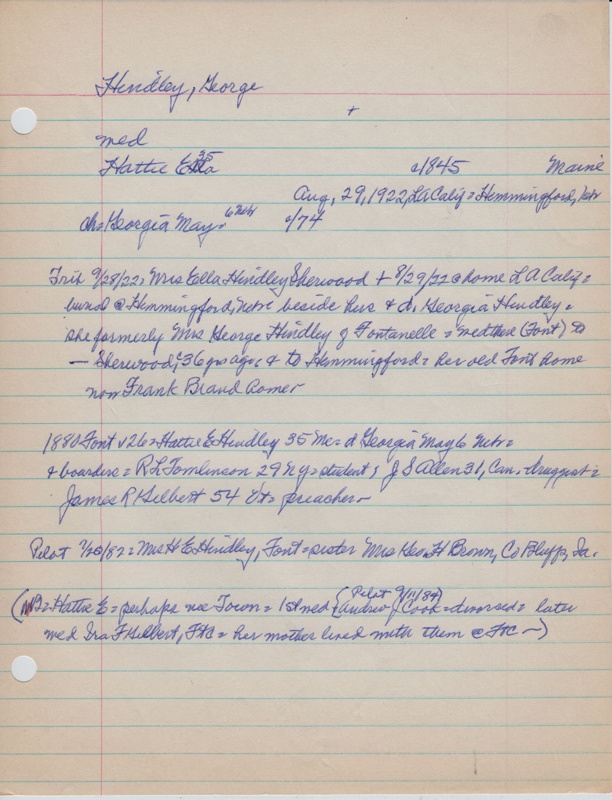 Hindley, George
+
med
Hattie Ella 35 c/1845 Maine
Aug, 29, 1922, LA Calif = Hemmingford, Nebr
ch = Georgia May = 6 Nebr c/74
Trib 9/28/22 = Mrs Ella Hindley Sherwood + 8/29/22 @ home LA Calif =
buried @ Hemmingford, Nebr beside hus & d, Georgia Hindley =
she formerly Mrs George Hindley of Fontanelle = med there (Font) to
— Sherwood, 36 yrs ago, & to Hemmingford = her old Font home
now Frank Brand home
1880 Font v26 = Hattie E Hindley 35 Me = d Georgia May 6 Nebr =
& boarders = R L Tomlinson 29 NY = student; J S Allen 31, Can. druggist =
James R Gilbert 54 Vt = preacher —
Pilot 7/20/82 = Mrs H E Hindley, Font = sister Mrs Geo. H Brown, Co Bluffs, Ia.
(NB = Hattie E = perhaps nee Town = 1st med {Pilot 9/11/84} Andrew J Cook = divorsed = later
med Ira F Gilbert, Ftc = her mother lived with them @ Ftc —)